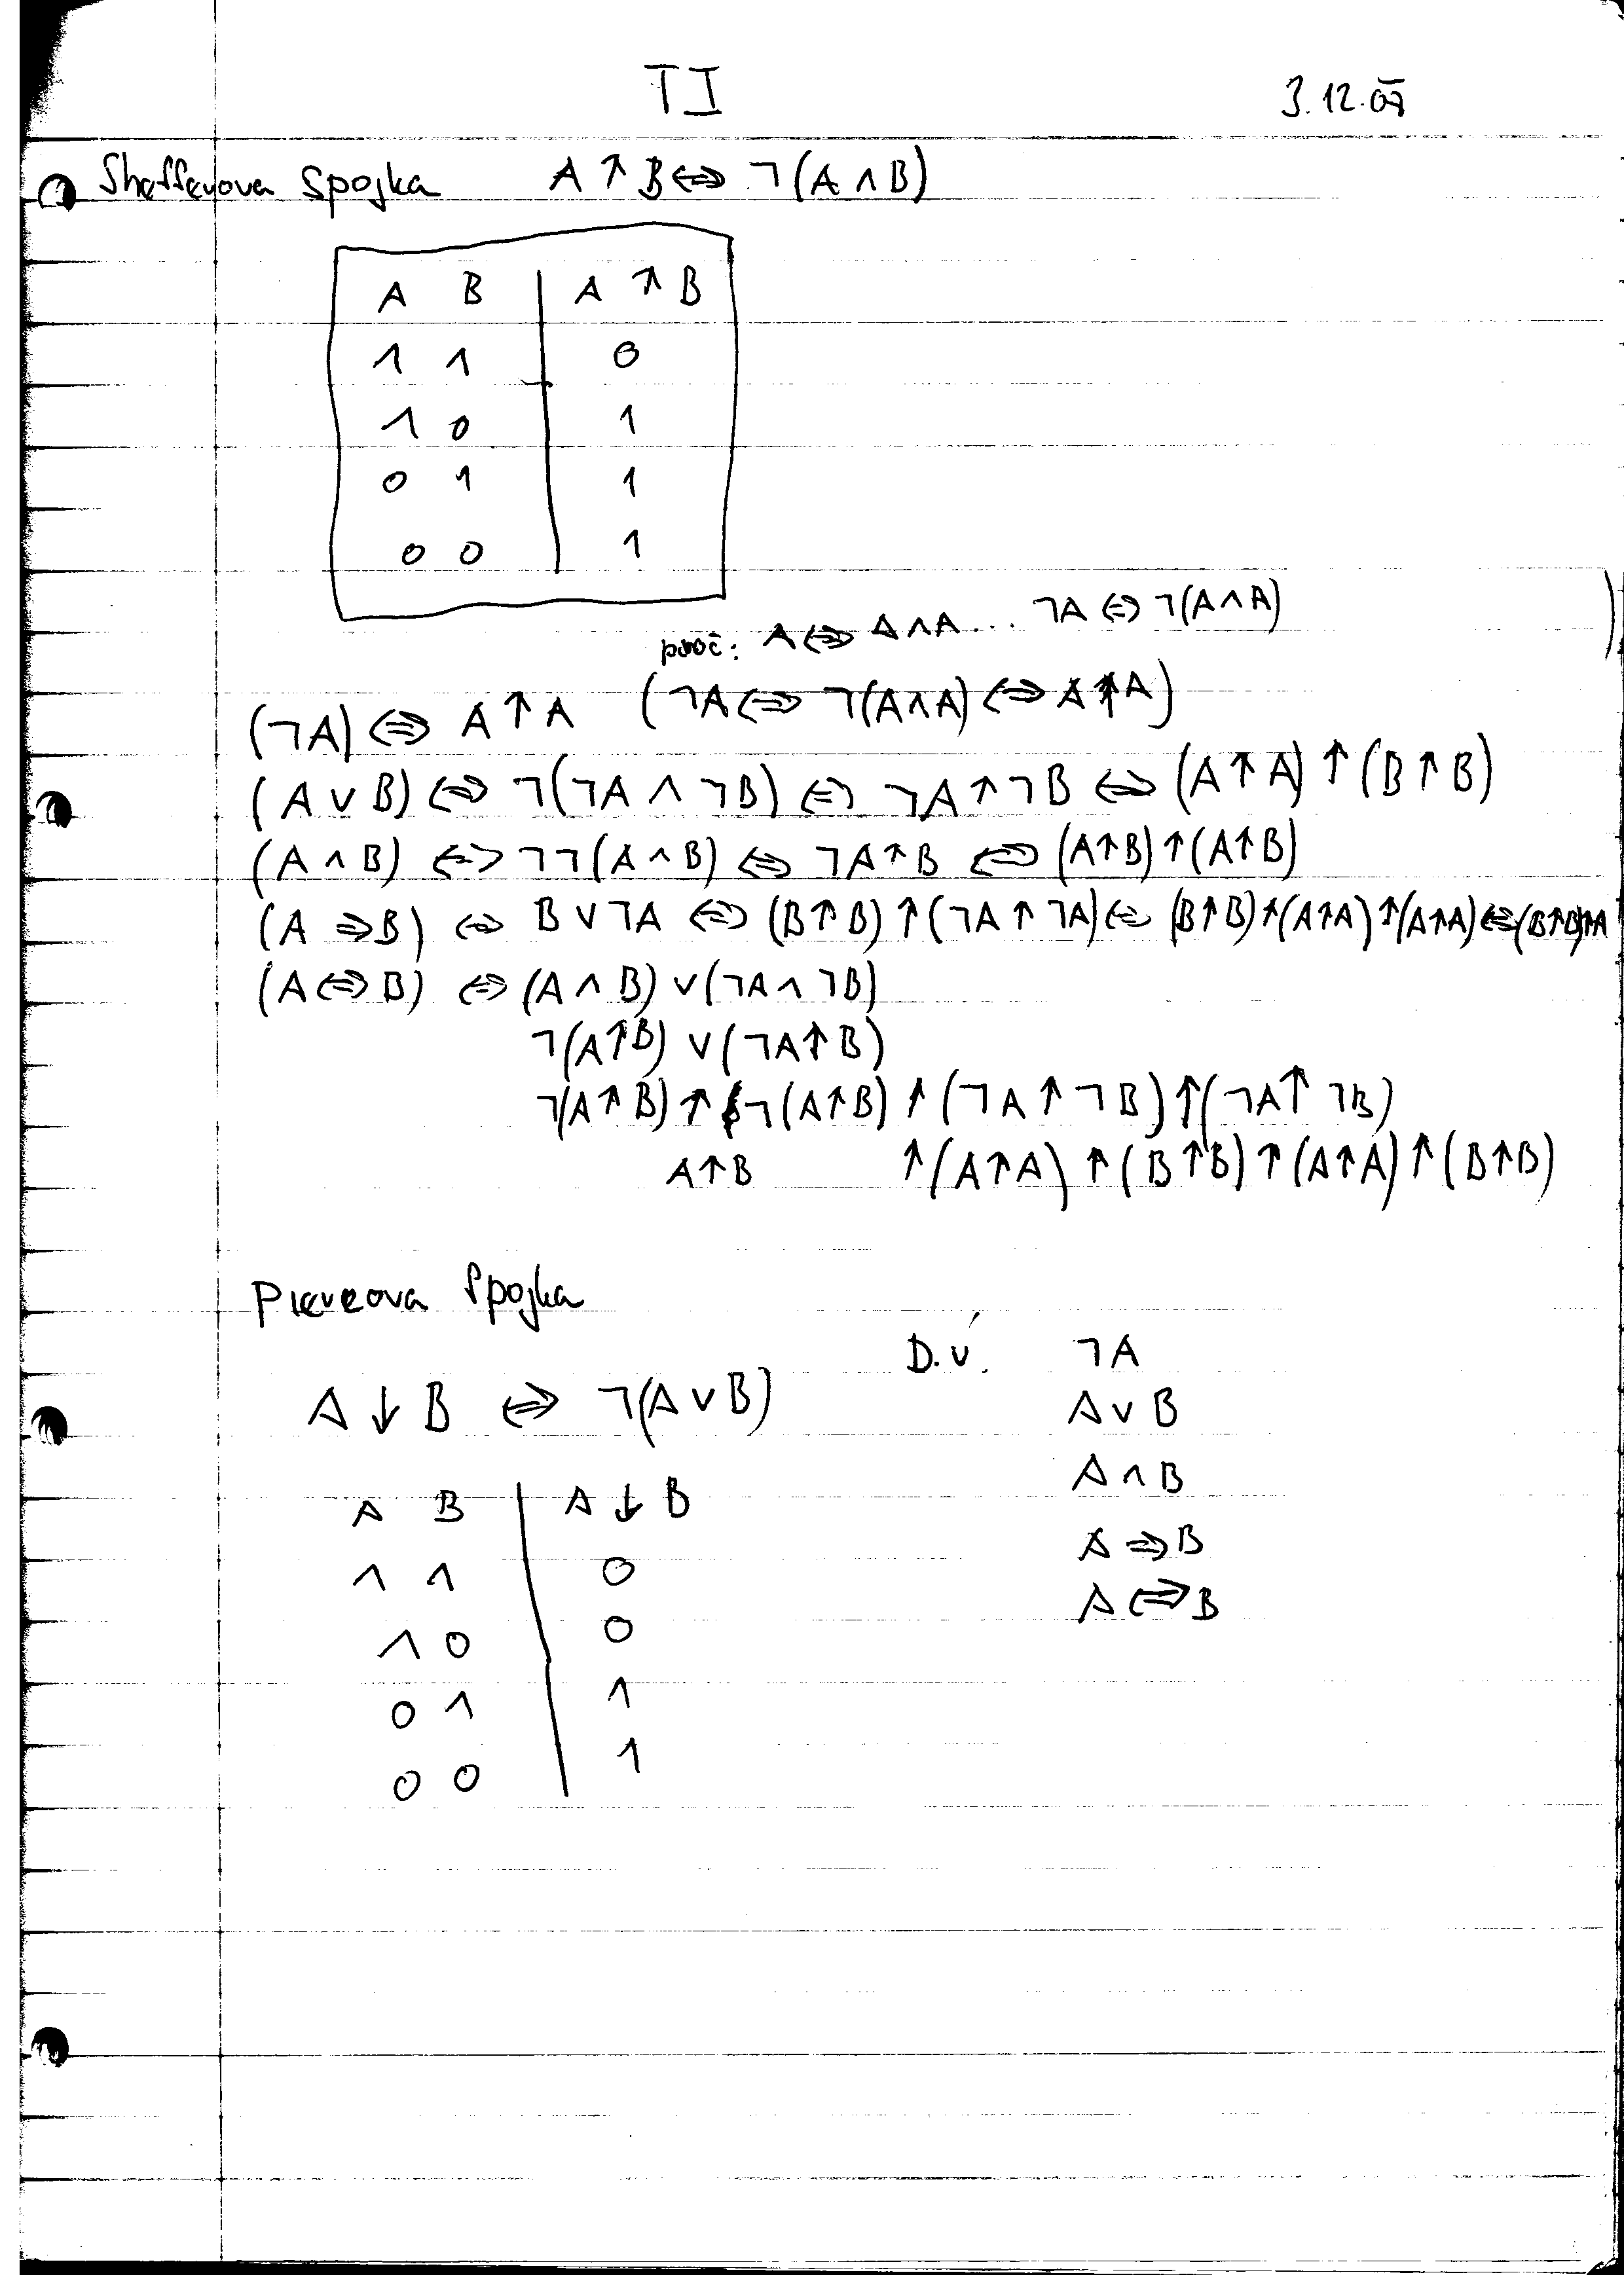 TI 3.12.07
Shefferova Spojka A ↑ B ⇔ ¬(A ∧ B)
A B | A ↑ B
1 1 | 0
1 0 | 1
0 1 | 1
0 0 | 1
proč: A ⇔ A∧A ... ¬A ⇔ ¬(A∧A)
(¬A) ⇔ A ↑ A (¬A ⇔ ¬(A∧A) ⇔ A↑A)
(A ∨ B) ⇔ ¬(¬A ∧ ¬B) ⇔ ¬A ↑ ¬B ⇔ (A ↑ A) ↑ (B ↑ B)
(A ∧ B) ⇔ ¬¬(A ∧ B) ⇔ ¬A↑B ⇔ (A↑B)↑(A↑B)
(A ⇒ B) ⇔ B ∨ ¬A ⇔ (B↑B)↑(¬A↑¬A) ⇔ (B↑B)↑(A↑A)↑(A↑A) ⇔ (B↑B)↑A
(A ⇔ B) ⇔ (A ∧ B) ∨ (¬A ∧ ¬B)
¬(A↑B) ∨ (¬A↑B)
¬(A↑B) ↑ ¬(A↑B) ↑ (¬A↑¬B)↑(¬A↑¬B)
A↑B ↑(A↑A)↑(B↑B)↑(A↑A)↑(B↑B)
Pierceova Spojka
D.ú. ¬A
A ↓ B ⇔ ¬(A ∨ B)
A ∨ B
A ∧ B
A ⇒ B
A ⇔ B
A B | A ↓ B
1 1 | 0
1 0 | 0
0 1 | 1
0 0 | 1